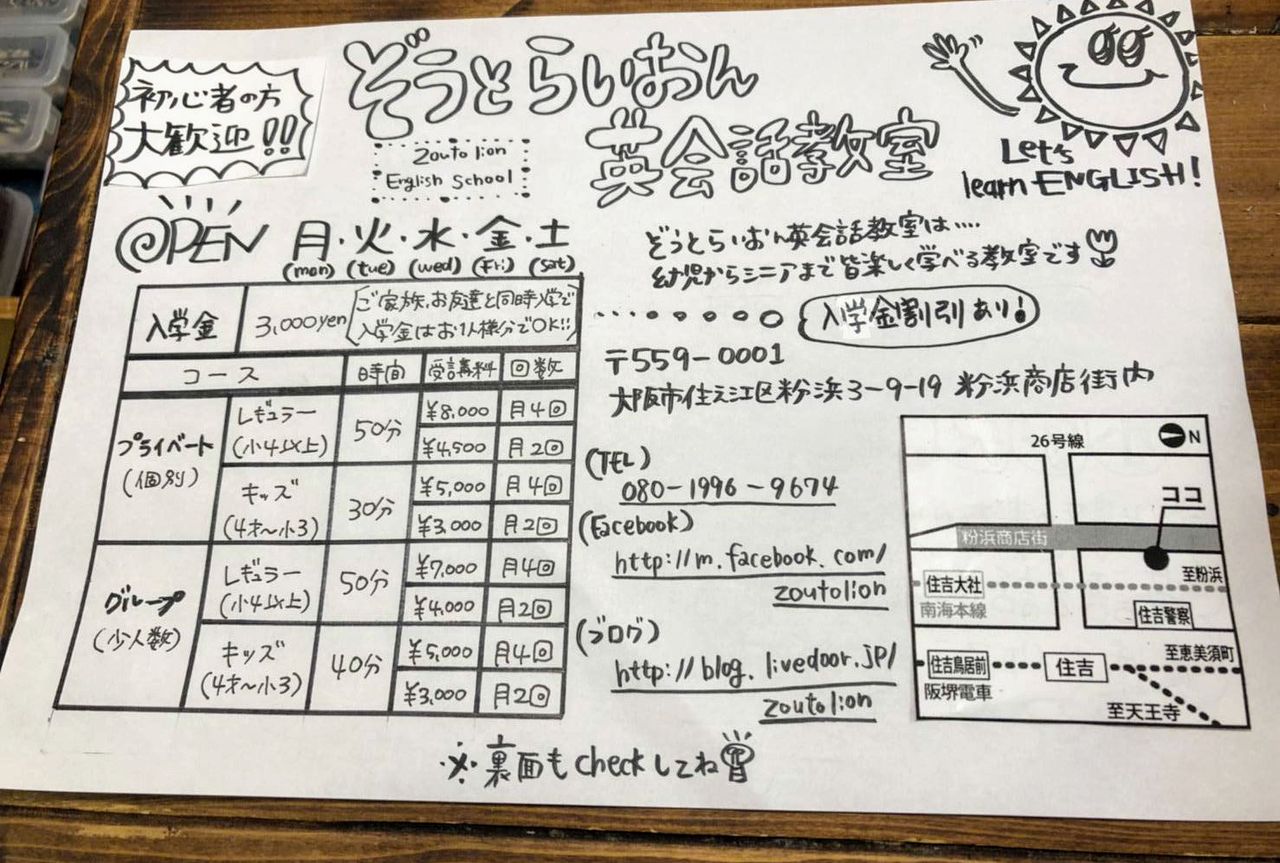 初心者の方
大歓迎!!
ぞうとらいおん
英会話教室
Zouto lion
English School
Let's
learn ENGLISH!
OPEN 月・火・水・金・土
(mon) (tue) (wed) (Fri) (sat)
入学金 3,000yen
ご家族、お友達と同時入学で
入学金はお1人様分でOK!!
コース 時間 受講料 回数
プライベート
(個別)
レギュラー
(小4以上)
50分
¥8,000 月4回
¥4,500 月2回
キッズ
(4才~小3)
30分
¥5,000 月4回
¥3,000 月2回
グループ
(少人数)
レギュラー
(小4以上)
50分
¥7,000 月4回
¥4,000 月2回
キッズ
(4才~小3)
40分
¥5,000 月4回
¥3,000 月2回
ぞうとらいおん英会話教室は....
幼児からシニアまで皆楽しく学べる教室です
入学金割引あり!
〒559-0001
大阪市住之江区粉浜3-9-19 粉浜商店街内
(TEL)
080-1996-9674
(Facebook)
http://m.facebook.com/
zoutolion
(ブログ)
http://blog.livedoor.jp/
zoutolion
26号線
N
ココ
粉浜商店街
至粉浜
住吉大社
南海本線
住吉警察
至恵美須町
住吉鳥居前
住吉
阪堺電車
至天王寺
※裏面もcheckしてね